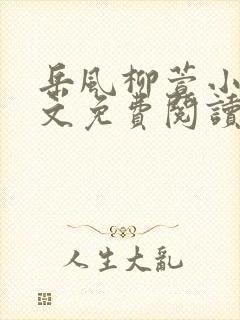 岳风柳萱小
文免費閱讀
人生大亂